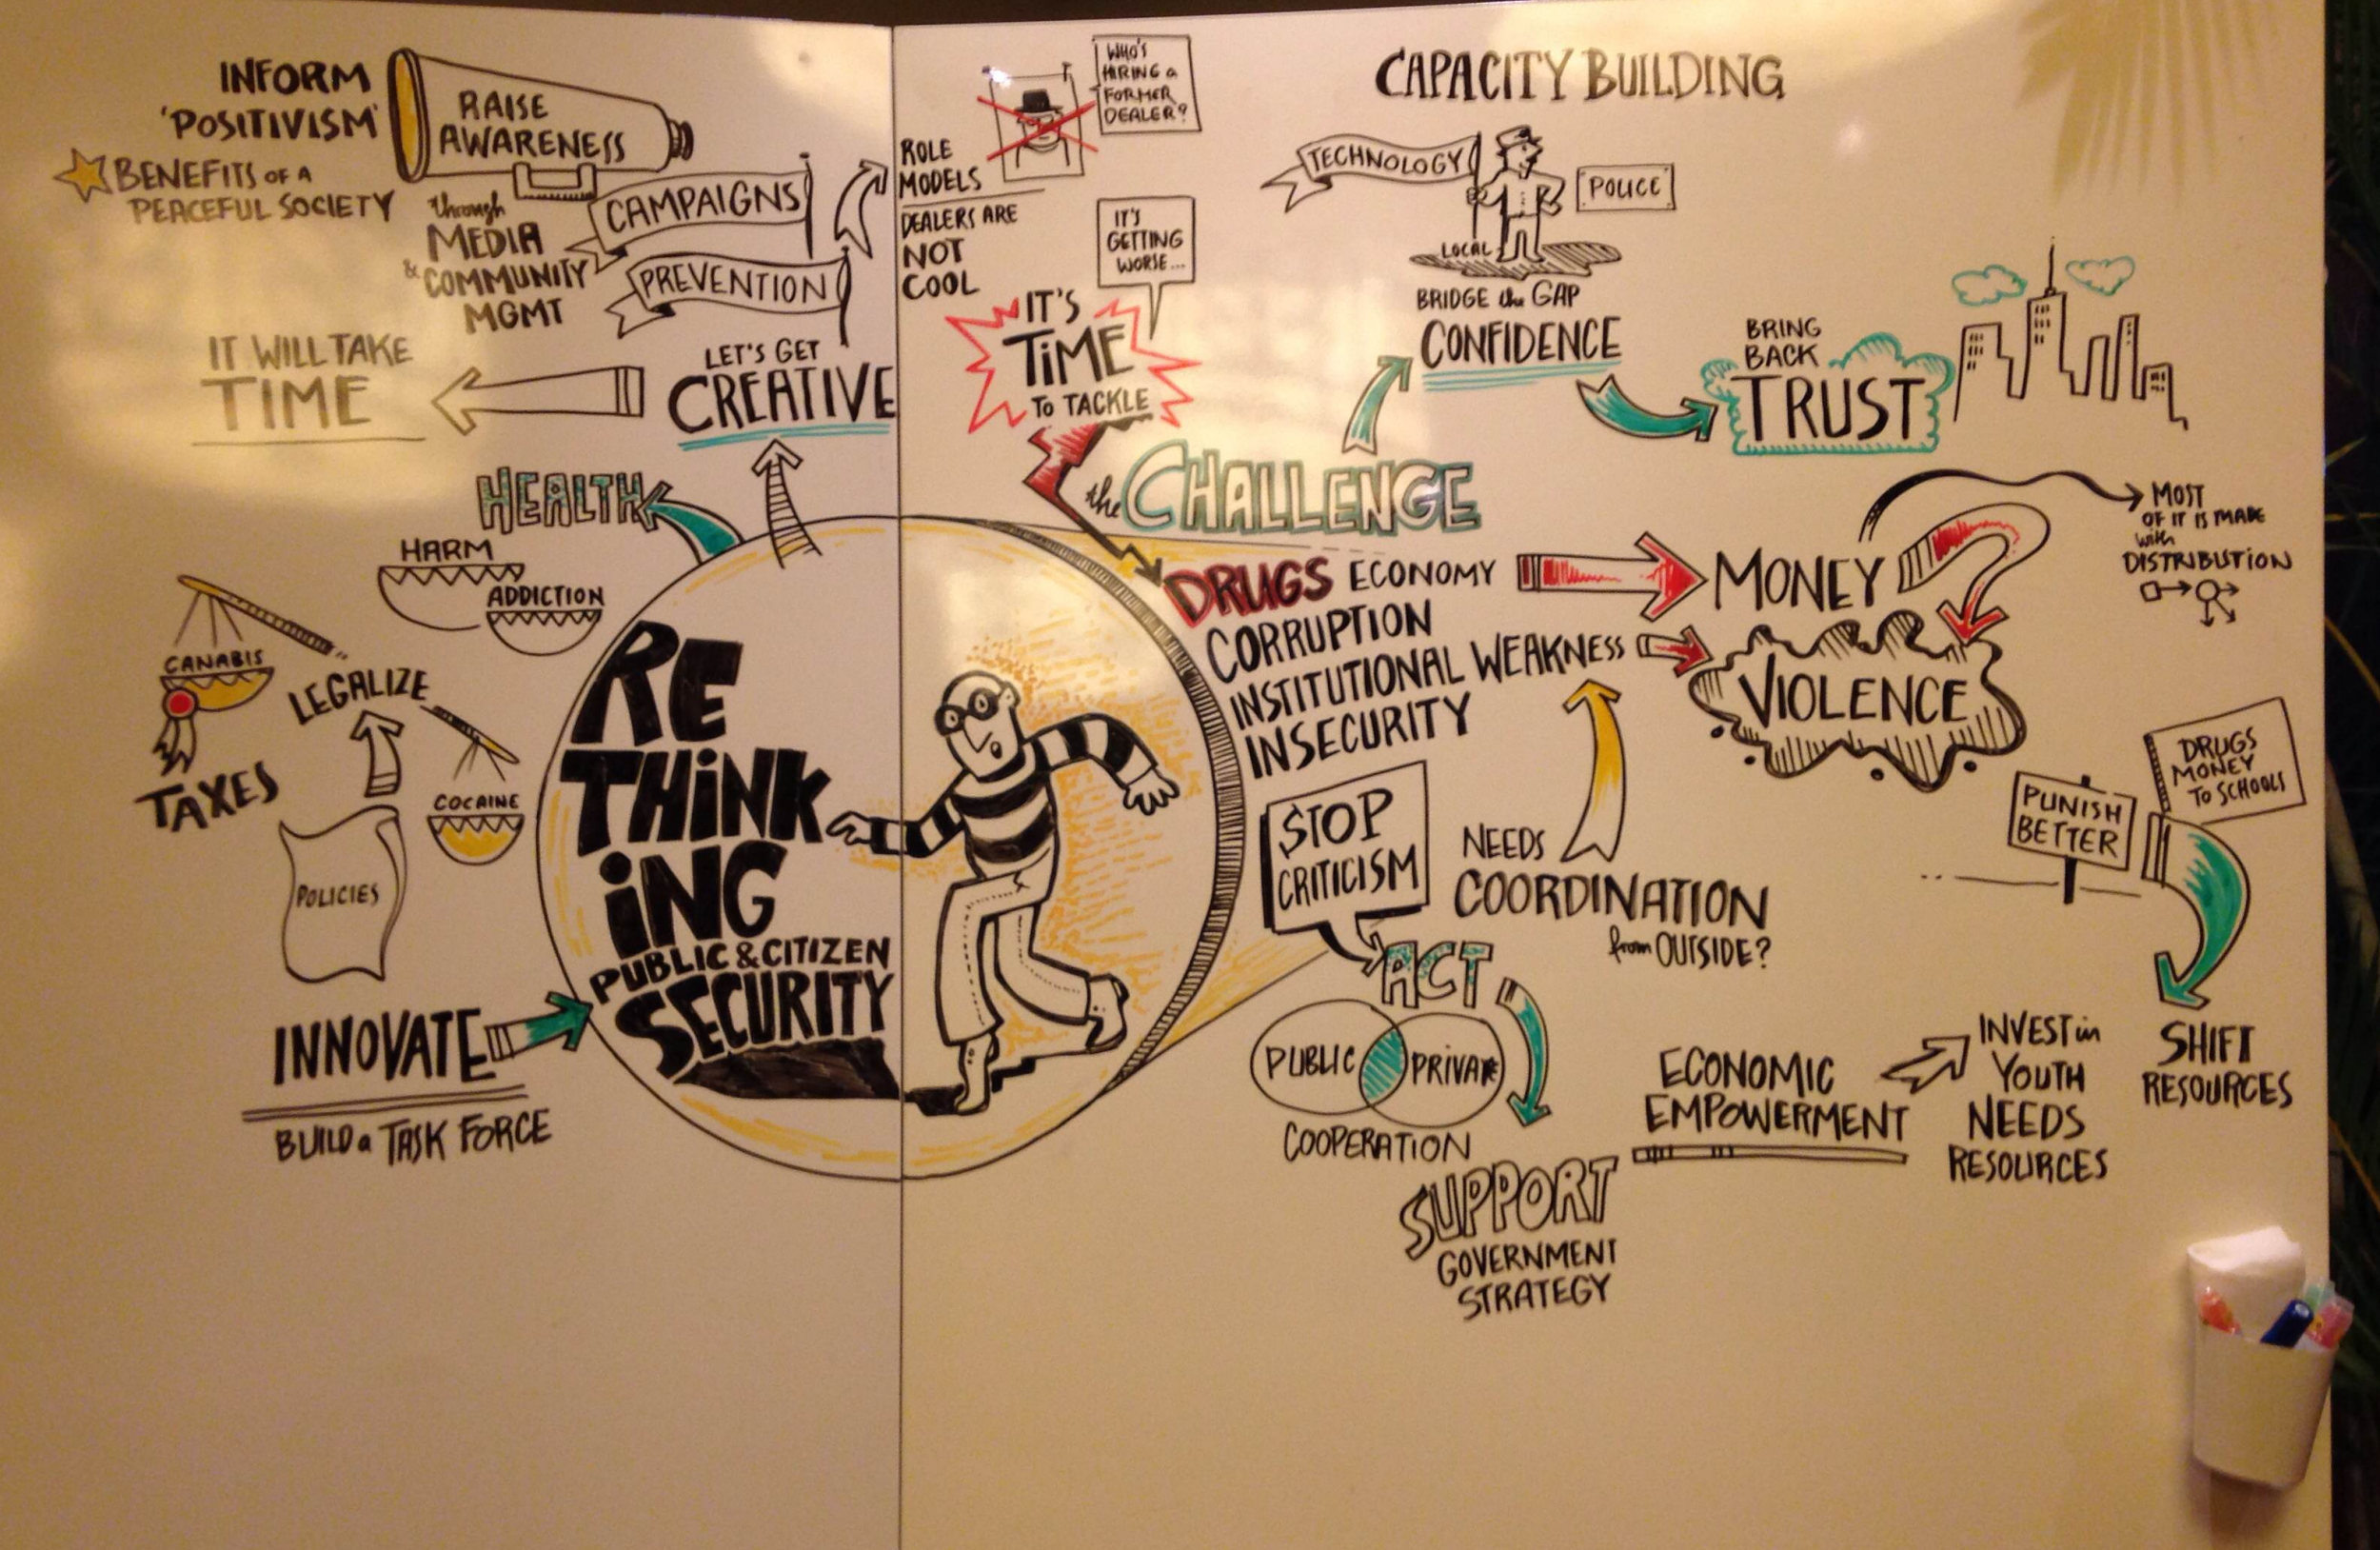 INFORM
'POSITIVISM'
BENEFITS OF A
PEACEFUL SOCIETY
RAISE
AWARENESS
through
MEDIA
& COMMUNITY
MGMT
CAMPAIGNS
PREVENTION
LET'S GET
CREATIVE
IT WILL TAKE
TIME
ROLE
MODELS
DEALERS ARE
NOT
COOL
WHO'S
HIRING a
FORMER
DEALER?
IT'S
GETTING
WORSE...
IT'S
TiME
TO TACKLE
the CHALLENGE
CAPACITY BUILDING
TECHNOLOGY
POLICE
LOCAL
BRIDGE the GAP
CONFIDENCE
BRING
BACK
TRUST
HEALTH
HARM
ADDICTION
CANABIS
LEGALIZE
TAXES
COCAINE
POLICIES
INNOVATE
BUILD a TASK FORCE
RE
THiNK
iNG
PUBLIC & CITIZEN
SECURITY
DRUGS ECONOMY
CORRUPTION
INSTITUTIONAL WEAKNESS
INSECURITY
MONEY
MOST
OF IT IS MADE
with
DISTRIBUTiON
VIOLENCE
STOP
CRITICISM
NEEDS
COORDINATION
from OUTSIDE?
ACT
PUBLIC
PRIVATE
COOPERATION
SUPPORT
GOVERNMENT
STRATEGY
ECONOMIC
EMPOWERMENT
INVEST in
YOUTH
NEEDS
RESOURCES
PUNISH
BETTER
DRUGS
MONEY
TO SCHOOLS
SHIFT
RESOURCES